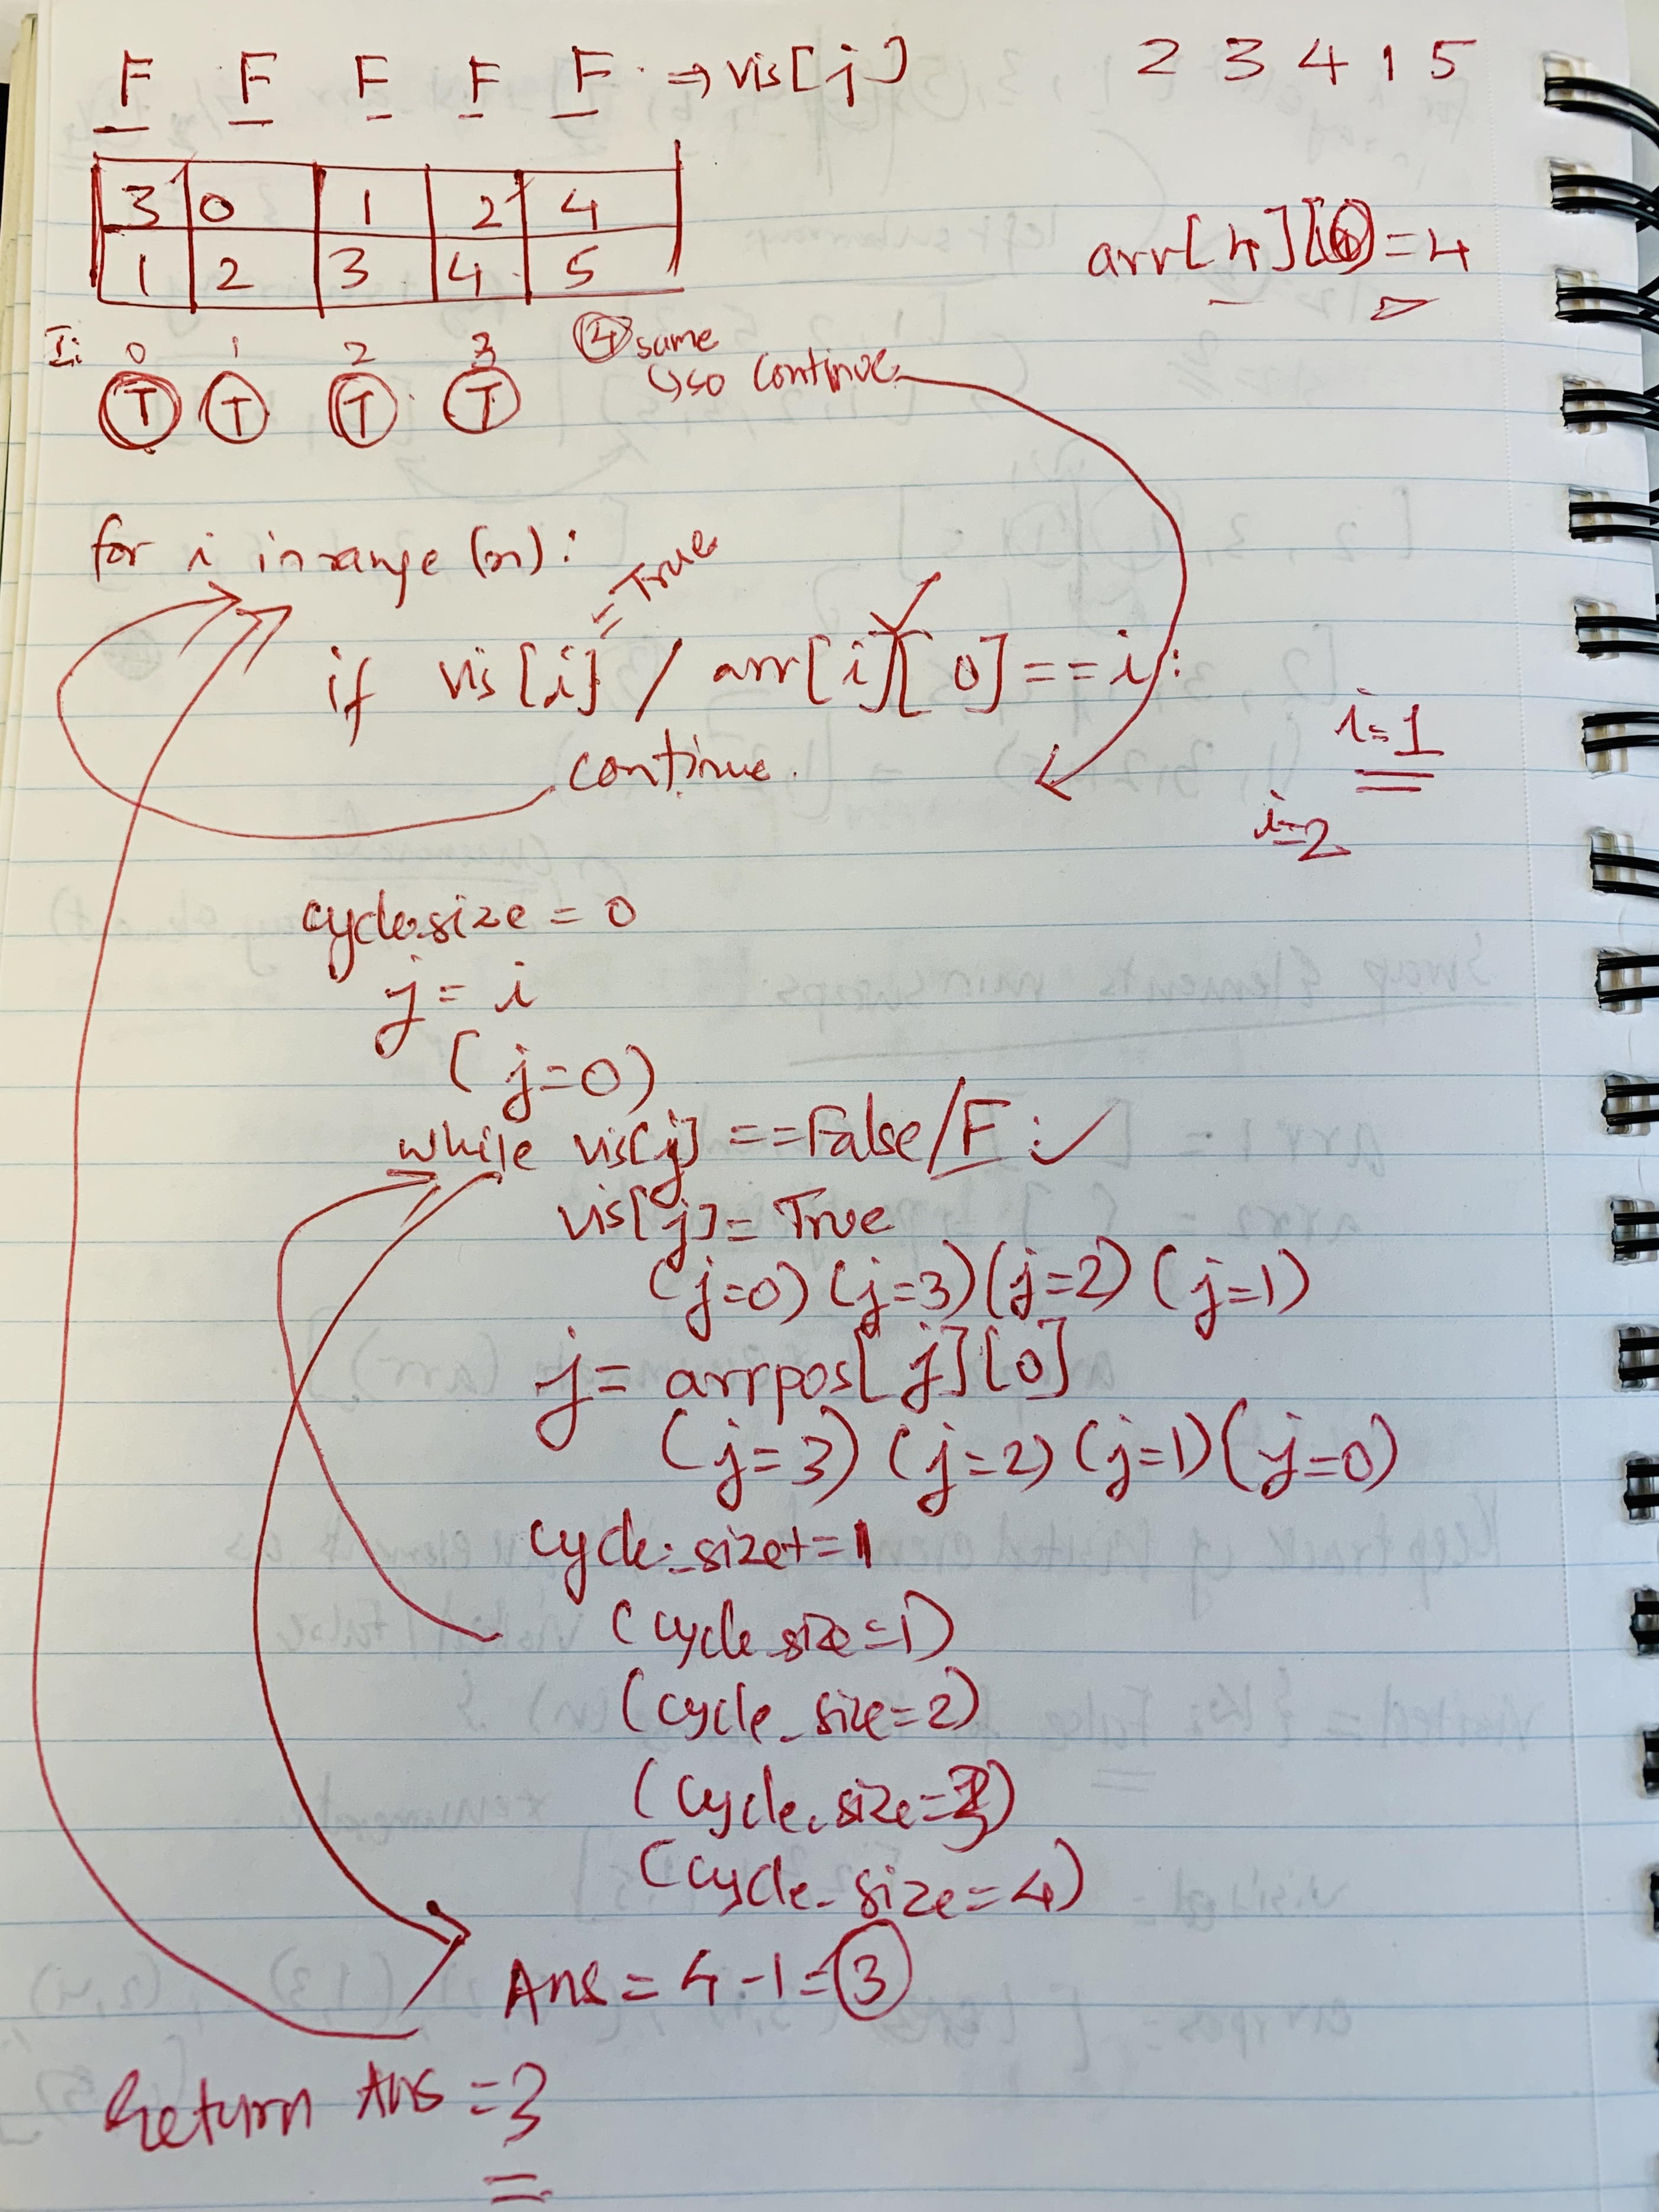 F F F F F ⇒ vis[j] 2 3 4 1 5
3 0 1 2 4
1 2 3 4 5
arr[4][0] = 4
I: 0 1 2 3 4 same
so continue
T T T T
for i in range (n):
= True
if vis[i] / arr[i][0] == i:
continue.
i=1
i=2
cycle_size = 0
j = i
(j=0)
while vis[j] == False/F :✓
vis[j] = True
(j=0) (j=3) (j=2) (j=1)
j = arrpos[j][0]
(j=3) (j=2) (j=1) (j=0)
cycle_size+=1
(cycle_size=1)
(cycle_size=2)
(cycle_size=3)
(cycle_size=4)
Ans = 4-1 = 3
Return Ans = 3